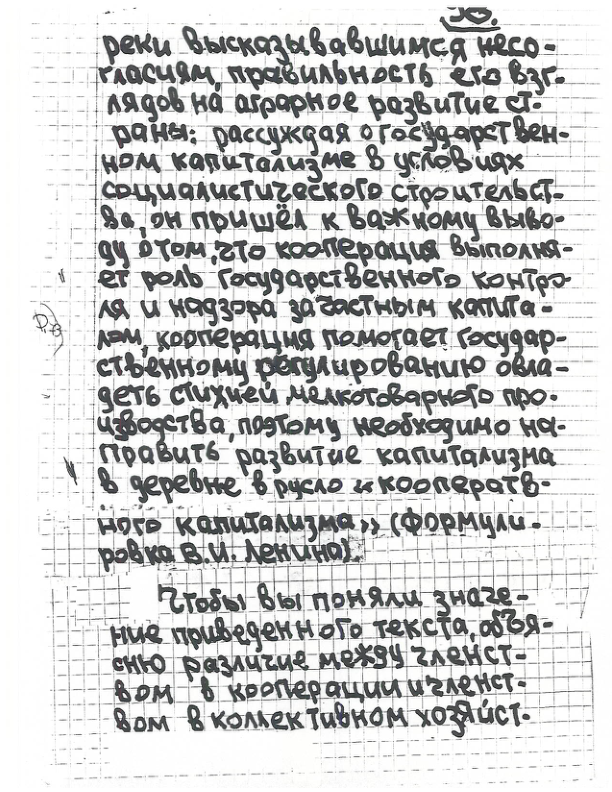 реки высказывавшимся несо-
гласиям, правильность его взг-
лядов на аграрное развитие ст-
раны: рассуждая о государствен-
ном капитализме в условиях
социалистического строительст-
ва, он пришёл к важному выво-
ду о том, что кооперация выполня-
ет роль государственного контро-
ля и надзора за частным капита-
лом, кооперация помогает государ-
ственному регулированию овла-
деть стихией мелкотоварного про-
изводства, поэтому необходимо на-
править развитие капитализма
в деревне в русло «кооператв-
ного капитализма» (формули-
ровка В.И. Ленина).
Чтобы вы поняли значе-
ние приведенного текста, объя-
сню различие между членст-
вом в кооперации и членст-
вом в коллективном хозяйст-